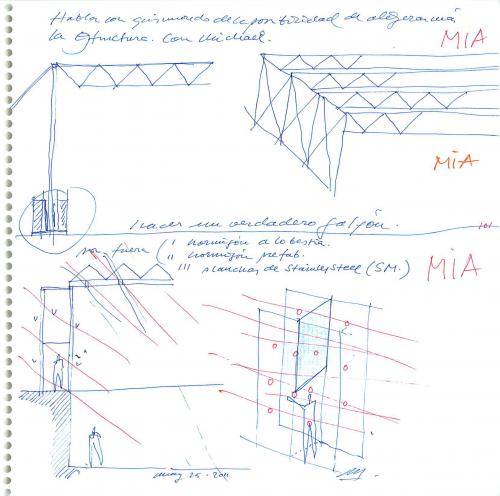 Hablar con Guismondo de la posibilidad de aligerar más
la estructura. Con Michael.
MIA
MIA
hacer un verdadero galpón.
101
por fuera
I hormigón a lo bestia.
II hormigón prefab.
III planchas de Stainlysteel (SM.)
MIA
may 25 - 2011